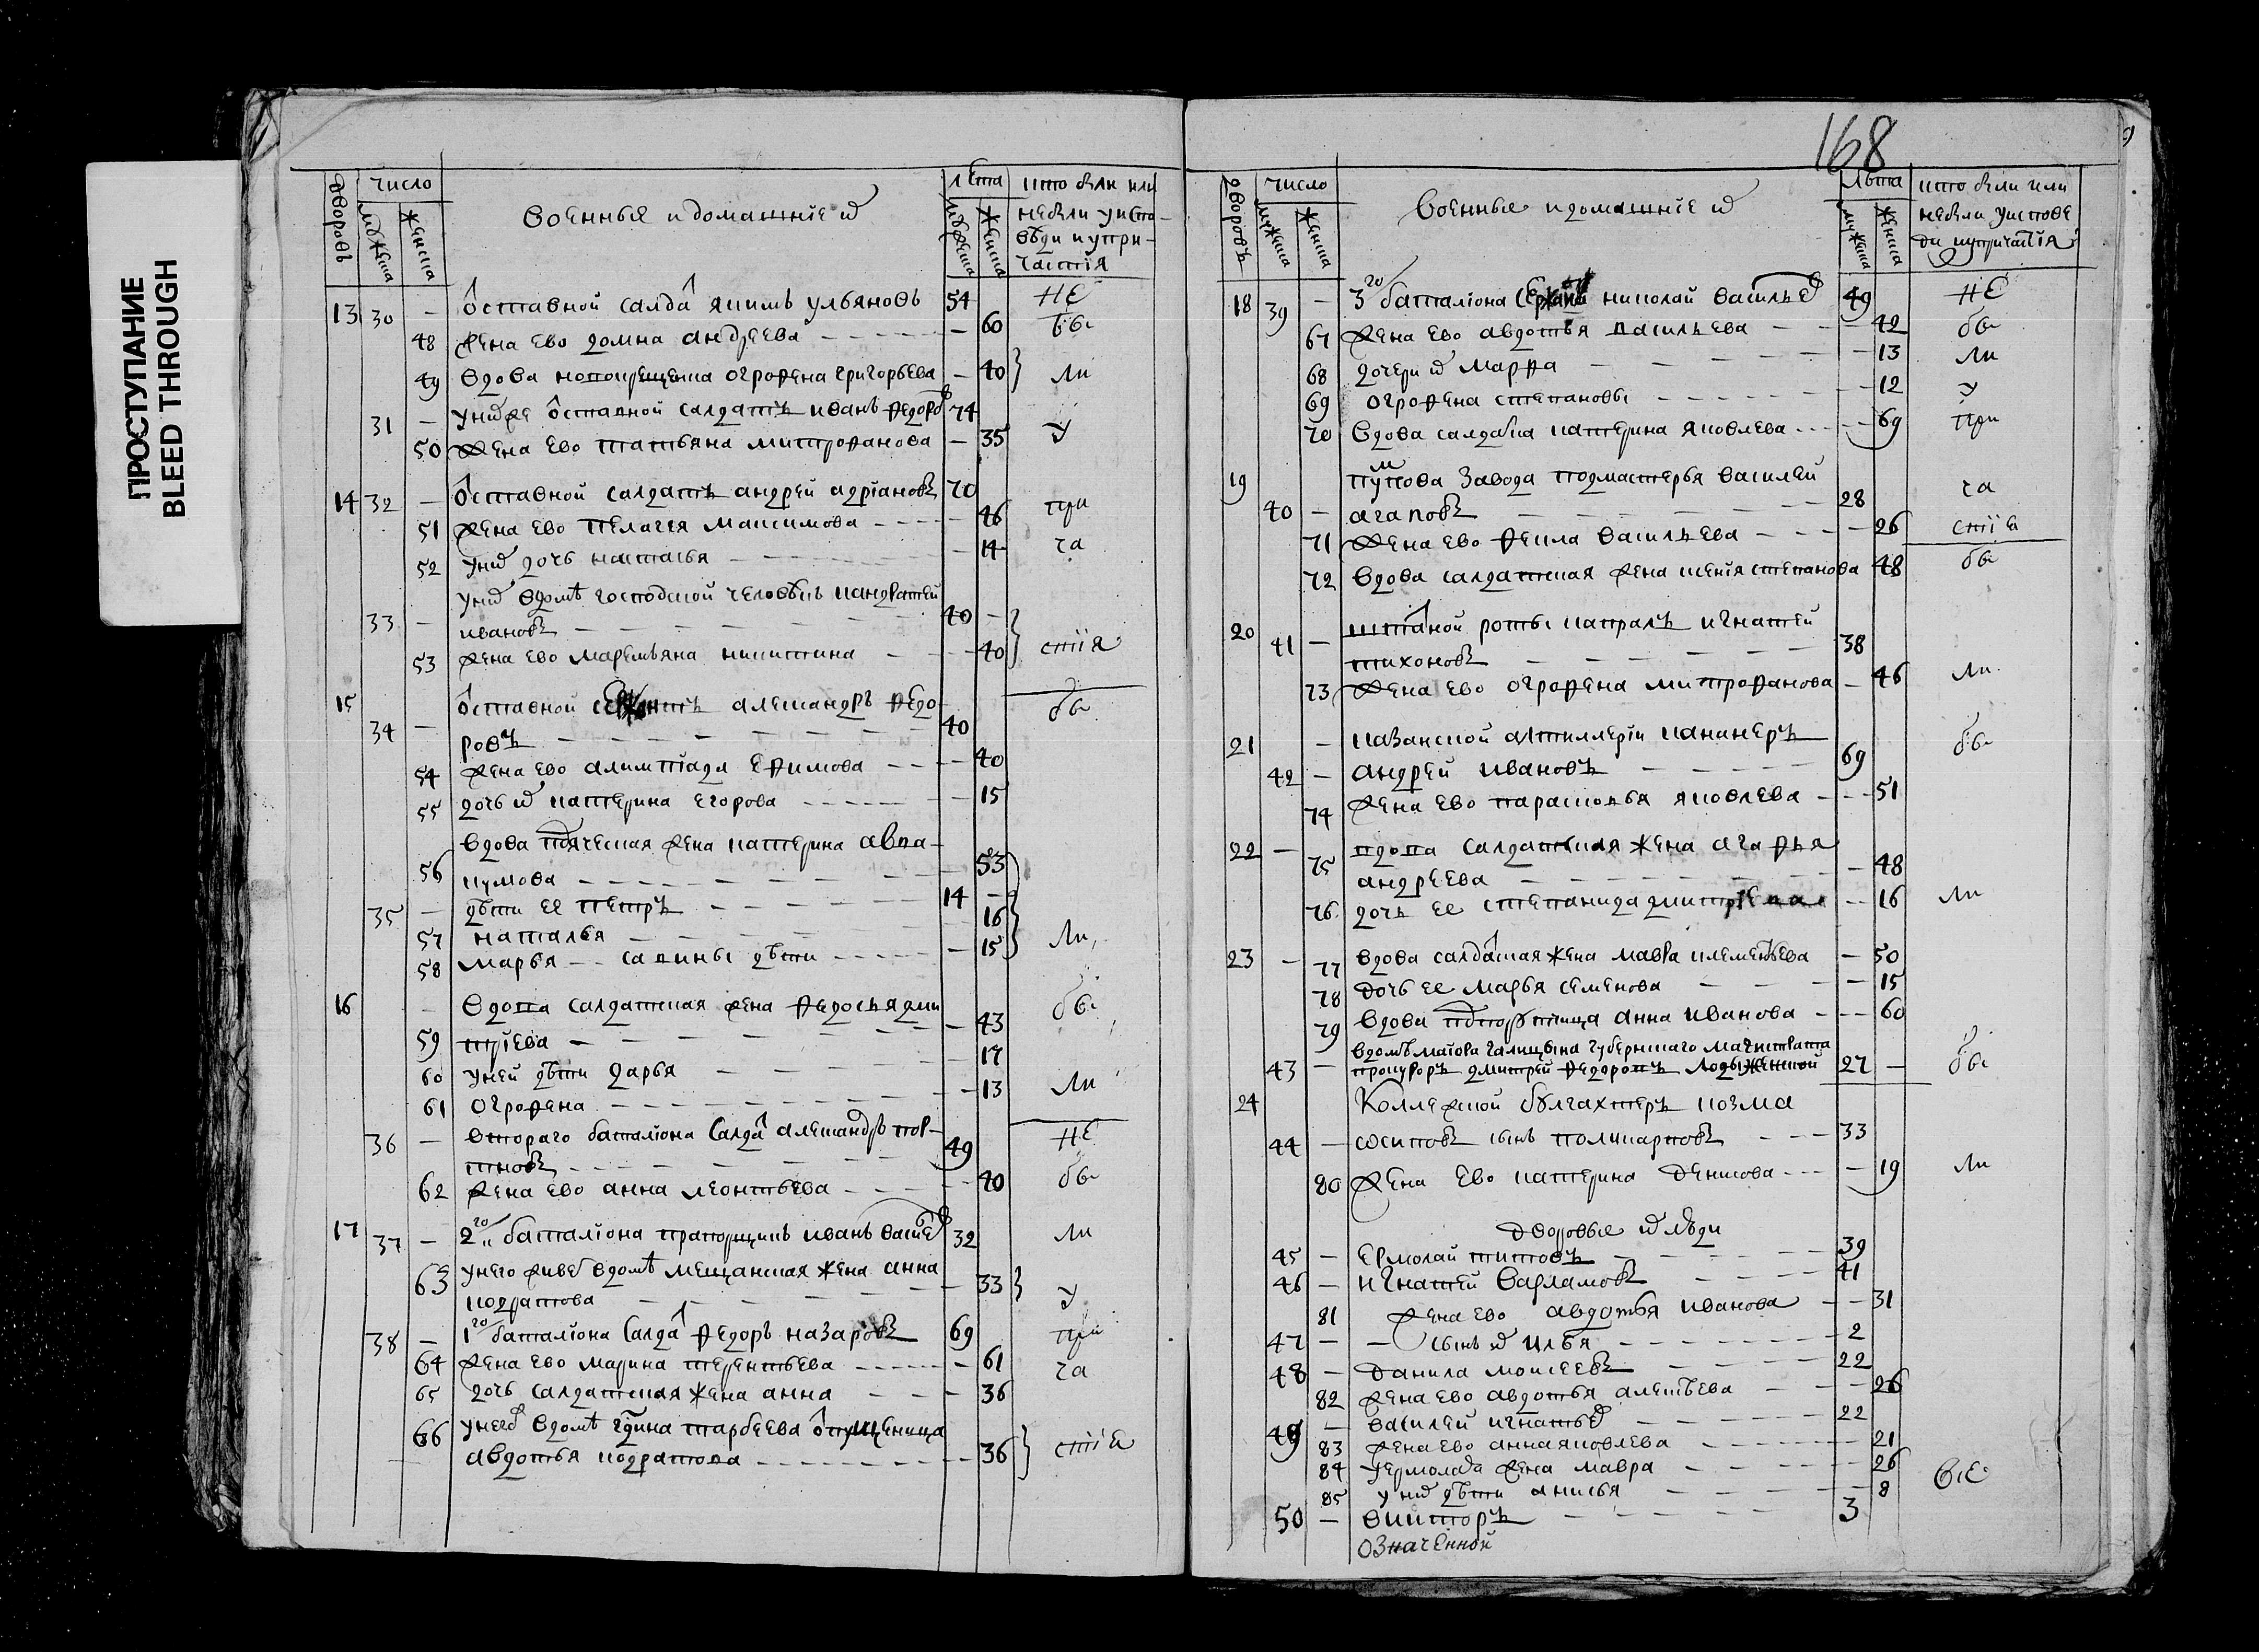 ПРОСТУПАНИЕ
BLEED THROUGH
дворовъ
число
мужеска
женска
военные и домашніе их
лета
мужеска
женска
кто были или
не были у испо-
веди и у при-
частія
13 30 — отставной салдат якимъ ульяновъ 54 не
48 жена ево домна андреева — 60 бы
49 вдова огрофена григорьева — 40 ли
31 — у них же отставной салдатъ иванъ федоров 74
50 жена ево татьяна митрофанова — 35 у
14 32 — отставной салдатъ андрей адріановъ 70
51 жена ево пелагея максимова — 46 при
52 у них дочь наталья — 14 ча
у них в доме господской человекъ кандратей
33 — ивановъ 40 —
53 жена ево маремьяна никитина — 40 стія
15 отставной сержантъ александръ федо
34 — ровъ 40 бы
54 жена ево алимпіада ефимова — 40
55 дочь их катерина егорова — 15
вдова подяческая жена катерина авва-
56 кумова — 53
35 — дети ее петръ 14 —
57 наталья — 16
58 марья — савины дети — 15 ли
16 — вдова салдатская жена федосья дми
59 тріева — 43 бы
60 у ней дети дарья — 17
61 огрофена — 13 ли
36 — втораго баталіона салдат александръ пор-
тновъ 49 не
62 жена ево анна леонтьева — 40 бы
17 37 — 2го баталіона прапорщикъ иванъ васильев 32 ли
у него живет в доме мещанская жена анна
63 кодратова — 33 у
38 — 1го баталіона салдат федоръ назаровъ 69 при
64 жена ево марина терентьева — 61 ча
65 дочь салдатская жена анна — 36
у него в доме гдина тарбеева отпущеница
66 авдотья кодратова — 36 стія
168
дворовъ
число
мужеска
женска
военные и домашніе их
лѣта
мужеска
женска
кто были или
не были у испове
ди и у причастія
18 39 — 3го баталіона сержант николай васильев 49 не
67 жена ево авдотья васильева — 42 бы
68 дочери их марфа — 13 ли
69 огрофена степановы — 12 у
70 вдова салдатска катерина яковлева — 69 при
19 завода подмастерья василей
40 — агаповъ 28 ча
71 жена ево фекла васильева — 26 стія
72 вдова салдатская жена ксенія степанова 48 бы
20 штатной роты капралъ игнатей
41 — тихоновъ 38
73 жена ево огрофена митрофанова — 46 ли
21 — казанской артиллеріи канинеръ
42 — андрей ивановъ 69 бы
74 жена ево парасковья яковлева — 51
22 — вдова салдатская жена агафья
75 андреева — 48
76 дочь ее степанида дмитріева — 16 ли
23 — 77 вдова салдатская жена мавра клементьева — 50
78 дочь ее марья семенова — 15
79 вдова анна иванова — 60
в доме маіора галицына губернскаго магистрата
43 — прокуроръ дмитрей федоровъ лодыженской 27 — бы
24 коллежской булгахтеръ козма
44 — осиповъ сынъ поликарповъ 33
80 жена ево катерина денисова — 19 ли
дворовые их люди
45 — ермолай титовъ 39
46 — игнатей варламовъ 41
81 жена ево авдотья иванова — 31
47 — сынъ их илья 2
48 — данила моисеевъ 22
82 жена ево авдотья алексеева — 26
49 — василей игнатьев 22
83 жена ево анна яковлева — 21
84 у ермолая жена мавра — 26
85 у них дети анисья — 8 все
50 — викторъ 3
означенной